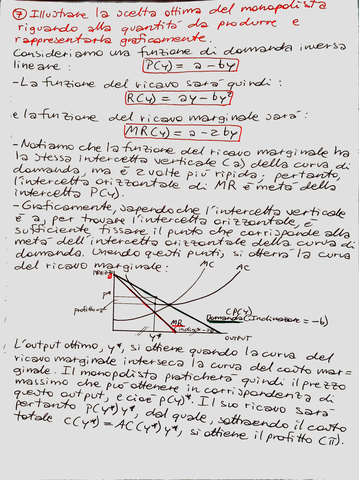 ⑦ Illustrare la scelta ottima del monopolista
riguardo alla quantità da produrre e
rappresentarla graficamente.
Consideriamo una funzione di domanda inversa
lineare: P(y) = a - by
-La funzione del ricavo sarà quindi:
R(y) = ay - by²
e la funzione del ricavo marginale sarà:
MR(y) = a - 2by
-Notiamo che la funzione del ricavo marginale ha
la stessa intercetta verticale (a) della curva di
domanda, ma è 2 volte più ripida; pertanto,
l'intercetta orizzontale di MR è metà della
intercetta P(y).
-Graficamente, sapendo che l'intercetta verticale
è a, per trovare l'intercetta orizzontale, è
sufficiente fissare il punto che corrisponde alla
metà dell'intercetta orizzontale della curva di
domanda. Unendo questi punti, si otterrà la curva
del ricavo marginale:
PREZZO
MC
AC
a
P*
profitto=π
(P(y)
Domanda (Inclinazione = -b)
MR
inclinaz=-2b
y*
OUTPUT
L'output ottimo, y*, si ottiene quando la curva del
ricavo marginale interseca la curva del costo mar=
ginale. Il monopolista praticherà quindi il prezzo
massimo che può ottenere in corrispondenza di
questo output, e cioè P(y)*. Il suo ricavo sarà
pertanto P(y*)y*, dal quale, sottraendo il costo
totale C(y*) = AC(y*)y*, si ottiene il profitto (π).